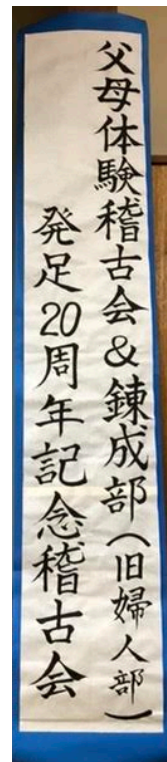 父母体験稽古会&錬成部(旧婦人部)
発足20周年記念稽古会